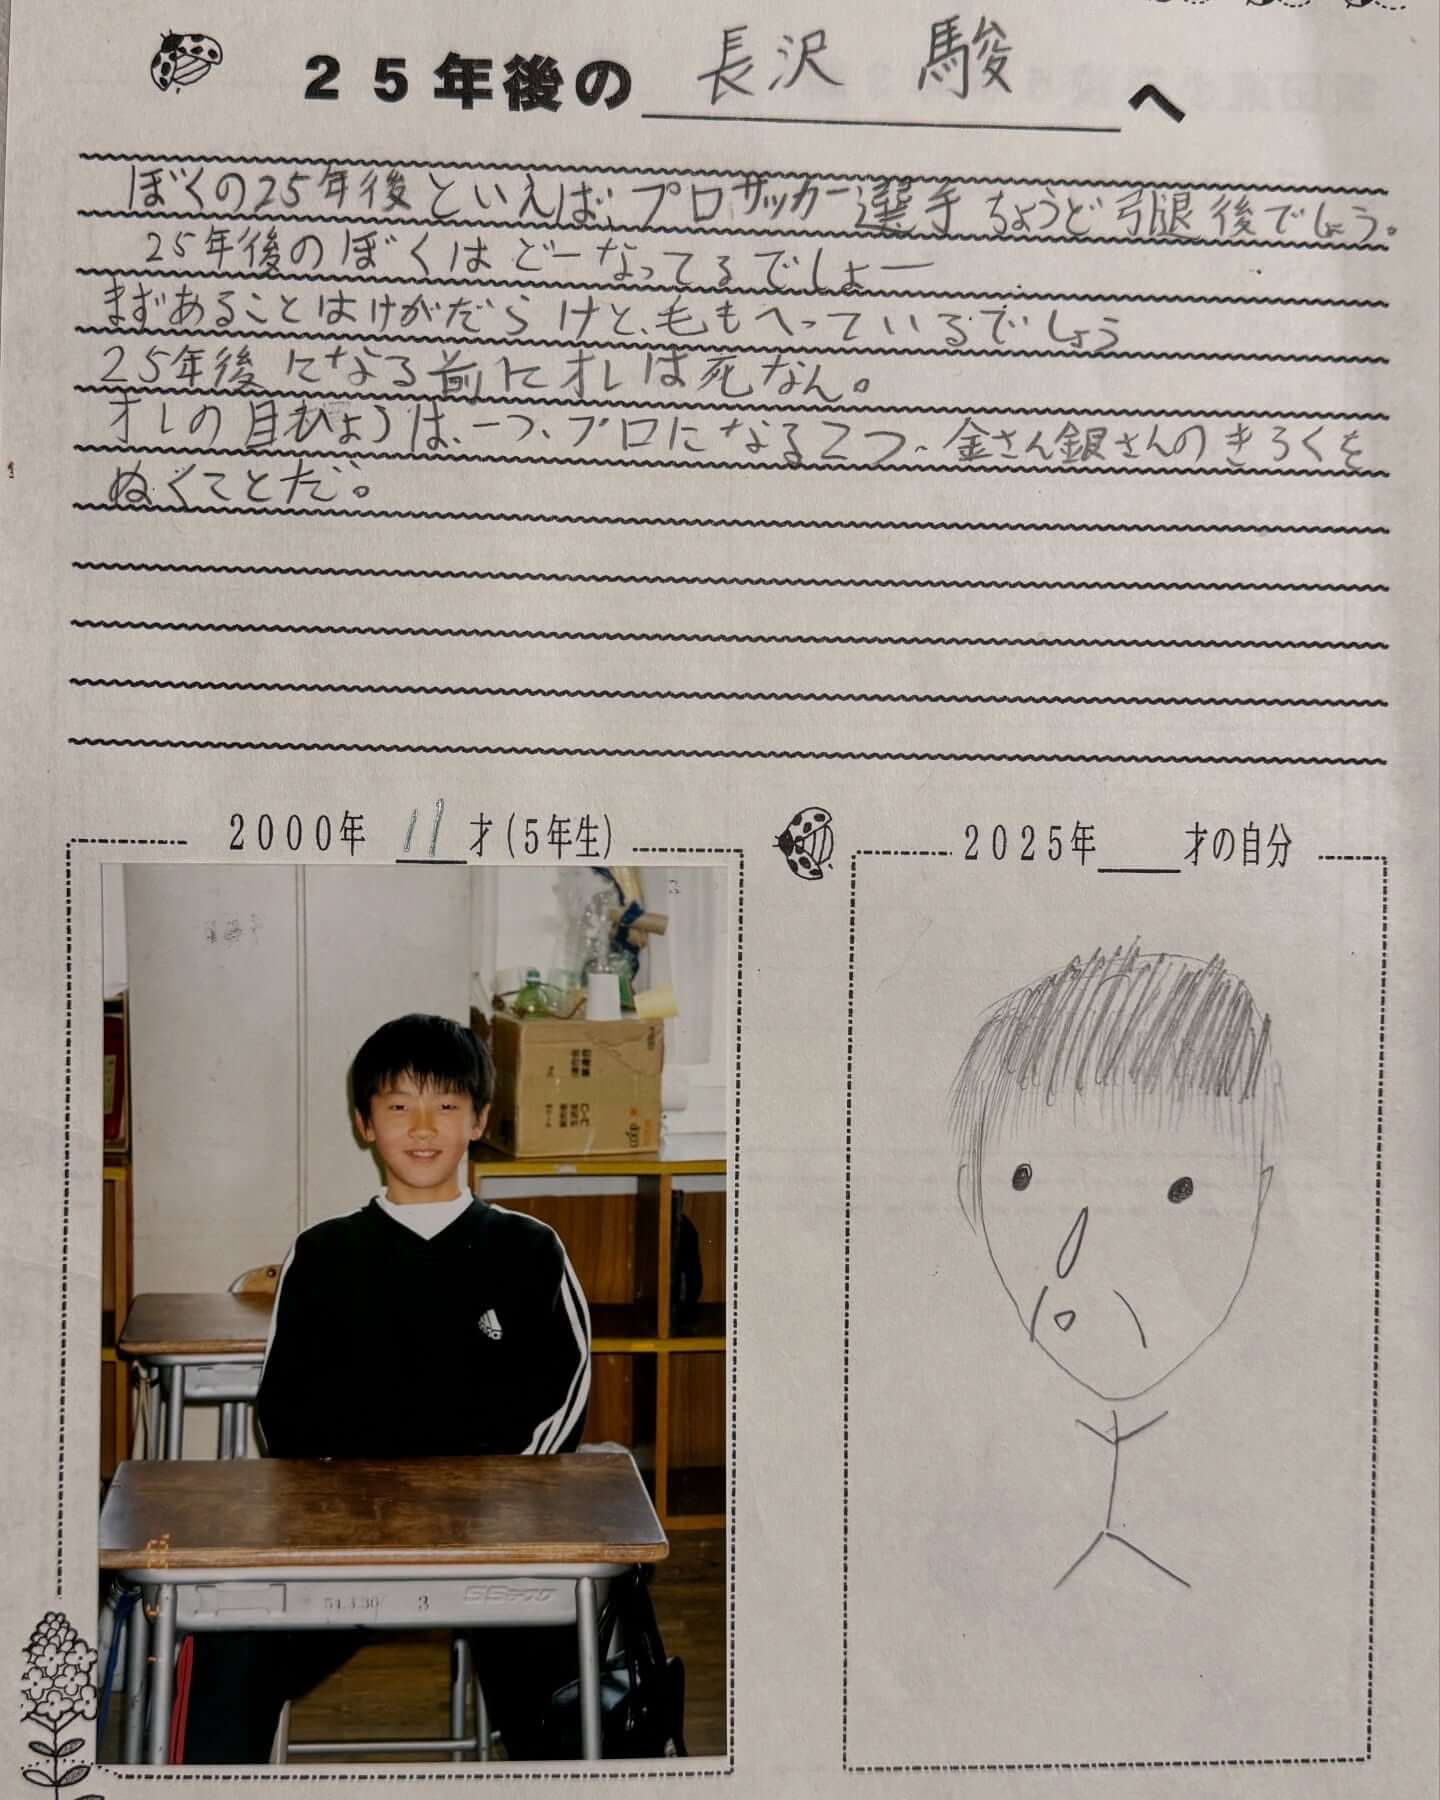 25年後の 長沢 駿 へ
ぼくの25年後といえば、プロサッカー選手ちょうど引退後でしょう。
25年後のぼくはどーなってるでしょー
まずあることはけがだらけと、毛もへっているでしょう
25年後になる前にオレは死なん。
オレの目ひょうは、一つ、プロになる二つ、金さん銀さんのきろくを
ぬくことだ。
2000年 11 才(5年生)
2025年 才の自分
adidas
54.3.30 3